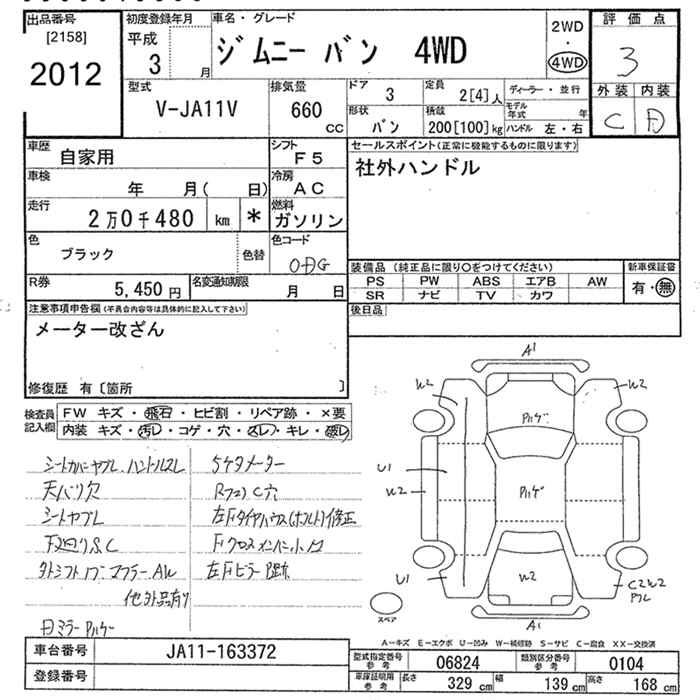 出品番号
[2158]
2012
初度登録年月
平成
3 月
車名・グレード
ジムニー バン 4WD
2WD
・
4WD
評価点
3
外装 内装
C D
型式
V-JA11V
排気量
660
CC
ドア
3
定員
2[4]人
ディーラー・並行
モデル
年式 年
形状
バン
積載
200[100]kg
ハンドル 左・右
車歴
自家用
シフト
F5
車検
年 月( 日)
冷房
AC
走行
2万0千480 km *
燃料
ガソリン
色
ブラック
色替
色コード
R券
5,450円
名変通知期限
月 日
セールスポイント(正常に機能するものに限ります)
社外ハンドル
装備品 (純正品に限り○をつけてください)
PS PW ABS エアB AW
SR ナビ TV カワ
新車保証書
有・無
後日品
注意事項申告欄(不具合内容等は具体的に記入して下さい)
メーター改ざん
修復歴 有〔箇所 〕
検査員
記入欄
FW キズ・飛石・ヒビ割・リペア跡・×要
内装 キズ・汚レ・コゲ・穴・スレ・キレ・破レ
シートカバーヤブレ.ハンドルスレ
天バリ欠
シートヤブレ
下廻りS.C
外シフトノブ マフラー.AW
他外品有り
内ミラーハゲ
5ケタメーター
RフロアC穴
A1
W2
W2
U1
W2
ハゲ
ハゲ
W2
U1
C2W2
A1
スペア
A―キズ E―エクボ U―凹み W―補修跡 S―サビ C―腐食 XX―交換済
車台番号
JA11-163372
登録番号
型式指定番号
参考
06824
類別区分番号
参考
0104
車庫証明用
参考
長さ
329 cm
幅
139 cm
高さ
168 cm